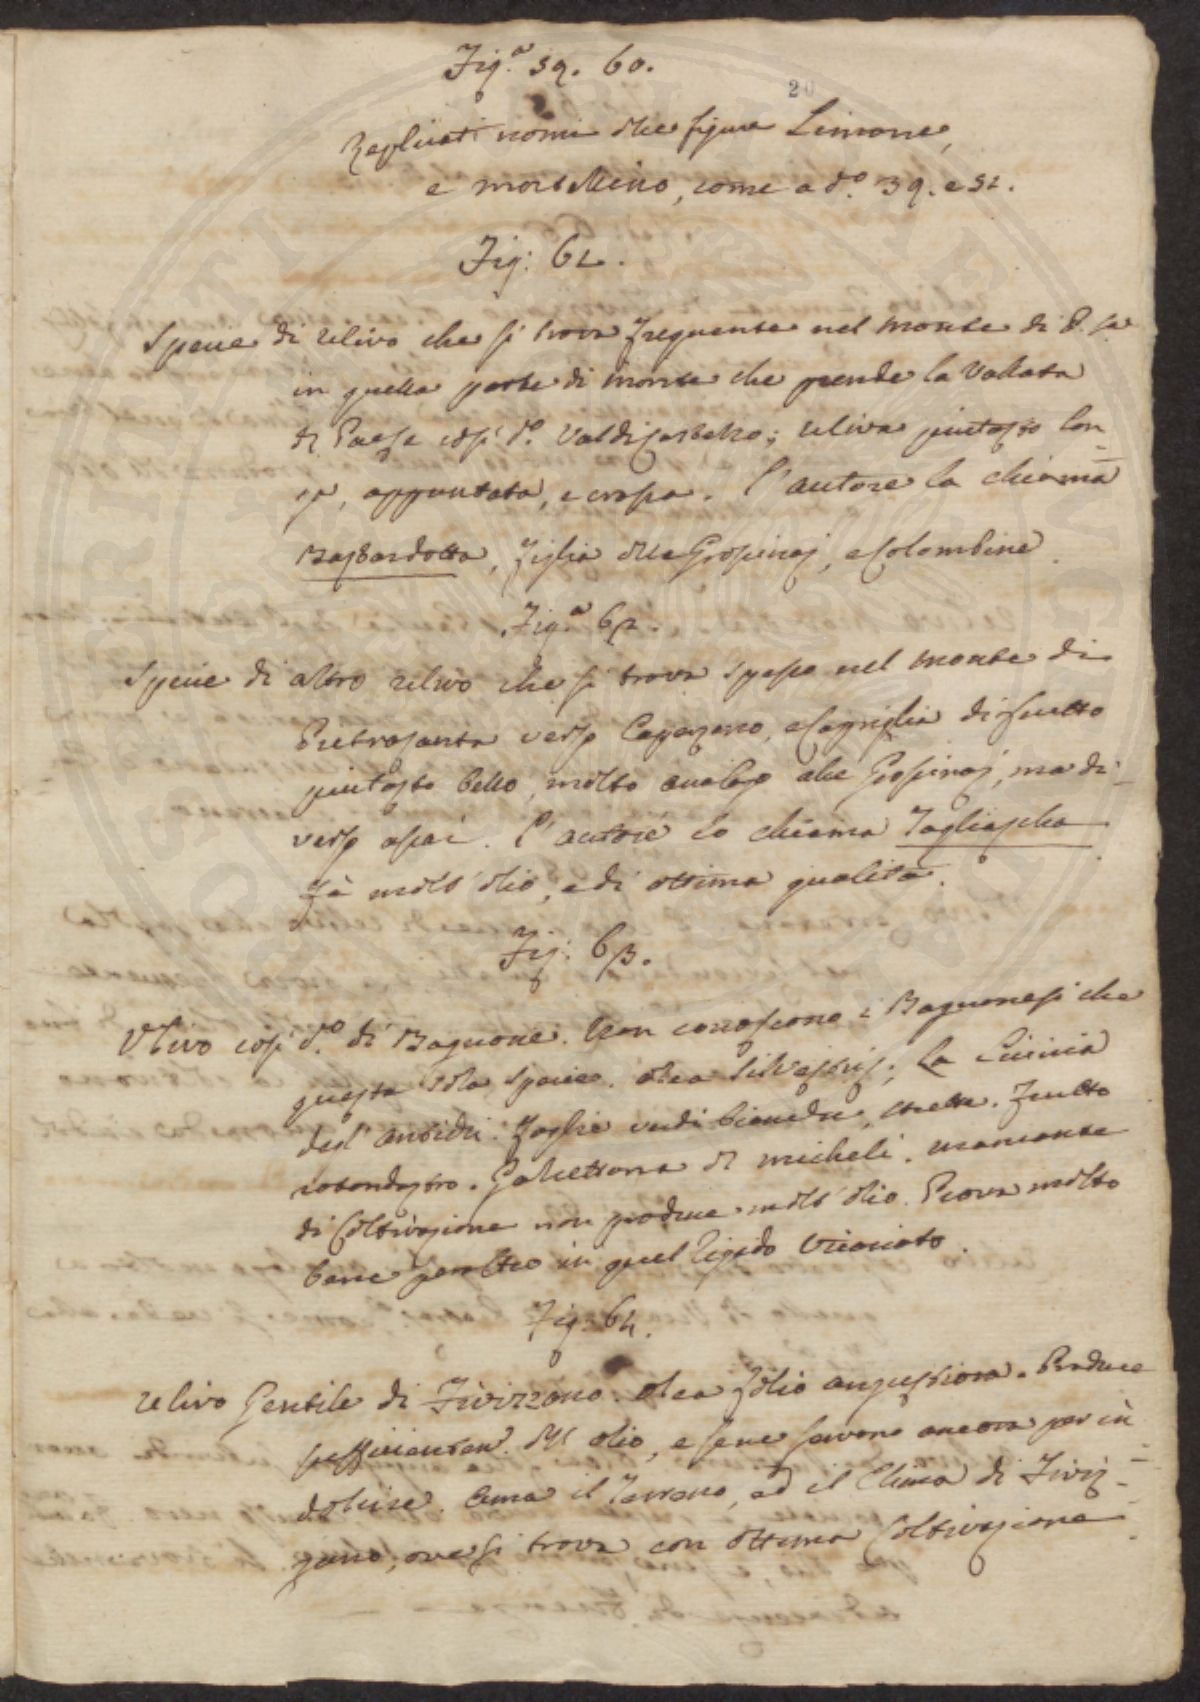 Fig.ª 59. 60.
20
Replicati nomi alle figure Limone,
e mortellino, come a d.º 39. e 52.
Fig: 61.
Specie di ulivo che si trova frequente nel monte di P. sª
in quella parte di monte che prende la Vallata
di Paese così d.º Valdicastello; uliva piutosto lon-
ga, appuntata, e crossa. L'autore la chiama
Bastardotta, figlia delle Grossinaj, e Colombine.
Fig.ª 62.
Specie di altro ulivo che si trova spesso nel monte di
Pietrasanta verso Capezano, e Capriglia di frutto
piutosto bello, molto analogo alle Grossinaj, ma di-
verso assai. L'autore lo chiama Tagliascha
Fà molt'olio, e di ottima qualità.
Fig: 63.
Ulivo così d.º di Bagnone. Non conoscono i Bagnonesi che
questa sola specie. olea silvestris. La Licinia
degl'antichi. Foglie verdi bianche, strette. Frutto
rotondastro. di micheli. mancante
di Coltivazione non produce molt'olio. Prova molto
bene peraltro in quel rigido Vicariato.
Fig: 64.
Ulivo Gentile di Fivizzano. olea folio angustiora. Produce
sufficientem. dell'olio, e se ne servono ancora per in
dolcire. Ama il Terreno, ed il Clima di Fiviz-
zano, ove si trova con ottima Coltivazione